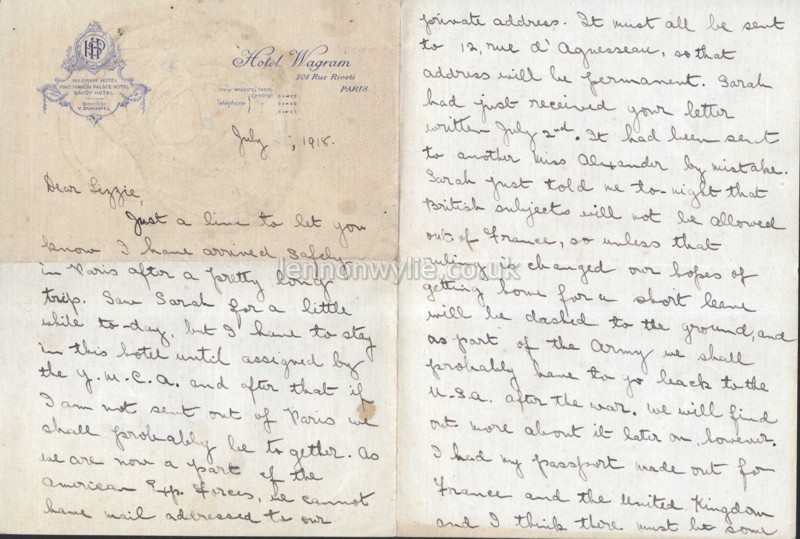 HP
WAGRAM HOTEL
SAVOY HOTEL
Hotel Wagram
208 Rue Rivoli
PARIS
Téléphone
July , 1918.
Dear Lizzie,
Just a line to let you
know I have arrived safely
in Paris after a pretty long
trip. Saw Sarah for a little
while to-day, but I have to stay
in this hotel until assigned by
the Y.M.C.A. and after that if
I am not sent out of Paris we
shall probably be to gether. As
we are now a part of the
American Exp. Forces, we cannot
have mail addressed to our
private address. It must all be sent
to 12, rue d'Agnesseau, so that
address will be permanent. Sarah
had just received your letter
written July 2nd. It had been sent
to another Miss Alexander by mistake.
Sarah just told me to-night that
British subjects will not be allowed
out of France, so unless that
ruling is changed our hopes of
getting home for a short leave
will be dashed to the ground, and
as part of the Army we shall
probably have to go back to the
U.S.A. after the war. We will find
out more about it later on, however.
I had my passport made out for
France and the United Kingdom
and I think there must be some
lennonwylie.co.uk